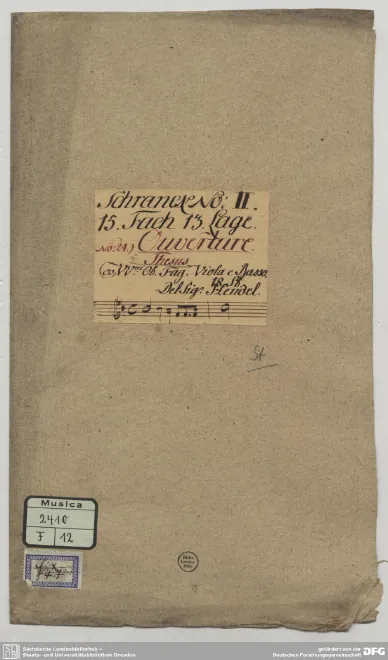 Schranck No: II.
15. Fach 13. Lage.
No: 21.) Ouverture
Thesus
co VVni Ob. Fag. Viola e Basso.
Del Sigr. Hendel.
St
Musica
2410
F 12
Sächsische Landesbibliothek –
Staats- und Universitätsbibliothek Dresden
gefördert von der
Deutschen Forschungsgemeinschaft
DFG